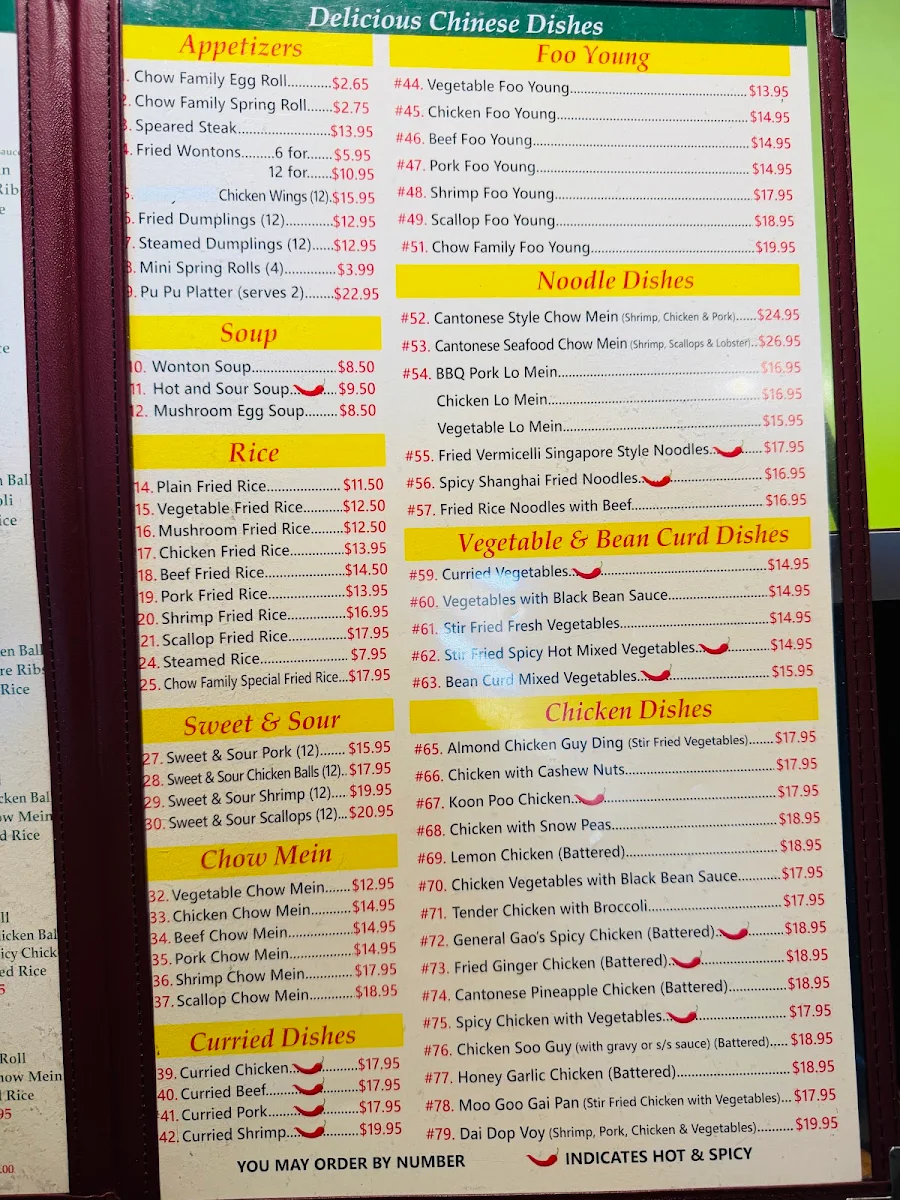 Delicious Chinese Dishes
Appetizers
. Chow Family Egg Roll............$2.65
2. Chow Family Spring Roll......$2.75
3. Speared Steak........................$13.95
4. Fried Wontons........6 for......$5.95
12 for......$10.95
5. Chicken Wings (12).$15.95
6. Fried Dumplings (12)............$12.95
7. Steamed Dumplings (12).....$12.95
8. Mini Spring Rolls (4)..............$3.99
9. Pu Pu Platter (serves 2)........$22.95
Soup
10. Wonton Soup......................$8.50
11. Hot and Sour Soup.......$9.50
12. Mushroom Egg Soup........$8.50
Rice
14. Plain Fried Rice...................$11.50
15. Vegetable Fried Rice..........$12.50
16. Mushroom Fried Rice........$12.50
17. Chicken Fried Rice.............$13.95
18. Beef Fried Rice....................$14.50
19. Pork Fried Rice...................$13.95
20. Shrimp Fried Rice..............$16.95
21. Scallop Fried Rice..............$17.95
24. Steamed Rice......................$7.95
25. Chow Family Special Fried Rice...$17.95
Sweet & Sour
27. Sweet & Sour Pork (12).......$15.95
28. Sweet & Sour Chicken Balls (12)..$17.95
29. Sweet & Sour Shrimp (12)....$19.95
30. Sweet & Sour Scallops (12)...$20.95
Chow Mein
32. Vegetable Chow Mein.......$12.95
33. Chicken Chow Mein..........$14.95
34. Beef Chow Mein................$14.95
35. Pork Chow Mein................$14.95
36. Shrimp Chow Mein............$17.95
37. Scallop Chow Mein............$18.95
Curried Dishes
39. Curried Chicken............$17.95
40. Curried Beef..................$17.95
41. Curried Pork..................$17.95
42. Curried Shrimp..............$19.95
Foo Young
#44. Vegetable Foo Young..........................................$13.95
#45. Chicken Foo Young.............................................$14.95
#46. Beef Foo Young...................................................$14.95
#47. Pork Foo Young...................................................$14.95
#48. Shrimp Foo Young...............................................$17.95
#49. Scallop Foo Young...............................................$18.95
#51. Chow Family Foo Young......................................$19.95
Noodle Dishes
#52. Cantonese Style Chow Mein (Shrimp, Chicken & Pork)......$24.95
#53. Cantonese Seafood Chow Mein (Shrimp, Scallops & Lobster)..$26.95
#54. BBQ Pork Lo Mein................................................$16.95
Chicken Lo Mein..................................................$16.95
Vegetable Lo Mein...............................................$15.95
#55. Fried Vermicelli Singapore Style Noodles..........$17.95
#56. Spicy Shanghai Fried Noodles.............................$16.95
#57. Fried Rice Noodles with Beef...............................$16.95
Vegetable & Bean Curd Dishes
#59. Curried Vegetables...............................................$14.95
#60. Vegetables with Black Bean Sauce.......................$14.95
#61. Stir Fried Fresh Vegetables...................................$14.95
#62. Stir Fried Spicy Hot Mixed Vegetables.................$14.95
#63. Bean Curd Mixed Vegetables................................$15.95
Chicken Dishes
#65. Almond Chicken Guy Ding (Stir Fried Vegetables)......$17.95
#66. Chicken with Cashew Nuts....................................$17.95
#67. Koon Poo Chicken..................................................$17.95
#68. Chicken with Snow Peas........................................$18.95
#69. Lemon Chicken (Battered).....................................$18.95
#70. Chicken Vegetables with Black Bean Sauce..........$17.95
#71. Tender Chicken with Broccoli................................$17.95
#72. General Gao's Spicy Chicken (Battered)................$18.95
#73. Fried Ginger Chicken (Battered)............................$18.95
#74. Cantonese Pineapple Chicken (Battered)..............$18.95
#75. Spicy Chicken with Vegetables..............................$17.95
#76. Chicken Soo Guy (with gravy or s/s sauce) (Battered).....$18.95
#77. Honey Garlic Chicken (Battered)...........................$18.95
#78. Moo Goo Gai Pan (Stir Fried Chicken with Vegetables)...$17.95
#79. Dai Dop Voy (Shrimp, Pork, Chicken & Vegetables).........$19.95
YOU MAY ORDER BY NUMBER
INDICATES HOT & SPICY